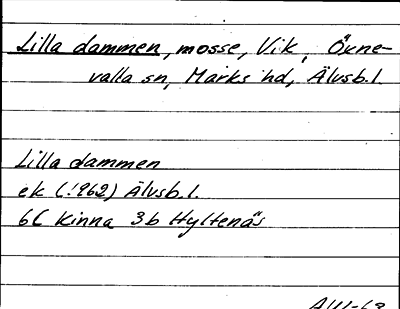 Lilla dammen, mosse, Vik, Öxne-
valla sn, Marks hd, Älvsb.l.
Lilla dammen
ek (1962) Älvsb.l.
6C Kinna 3b Hyltenäs